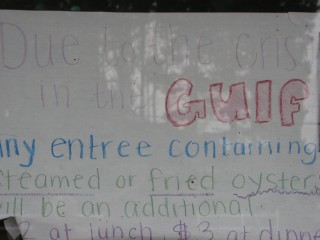 Due to the cris
in the GUIF
ny entree containing
steamed or fried oyster
will be an additional
2 at lunch, $3 at dinne